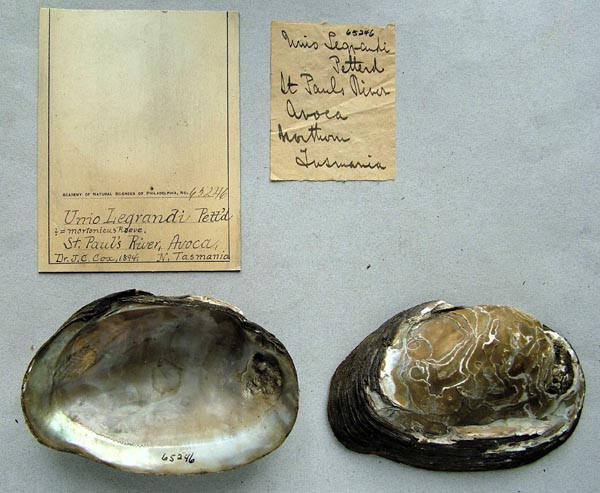 ACADEMY OF NATURAL SCIENCES OF PHILADELPHIA, NO. 65246
Unio Legrandi Pett'd
= mortonicus Reeve.
St. Paul's River, Avoca,
Dr. J. C. Cox, 1894. N. Tasmania
65246
Unio Legrandi
Petterd
St Pauls River
Avoca
Northern
Tasmania
65246